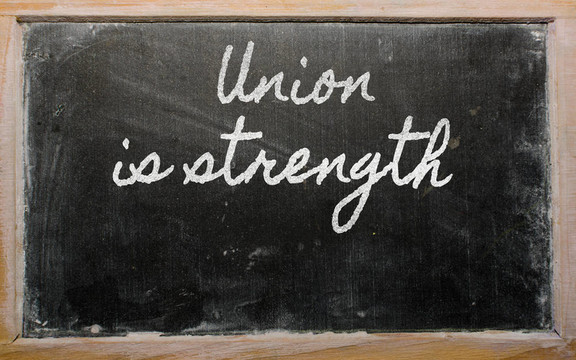 Union
is strength